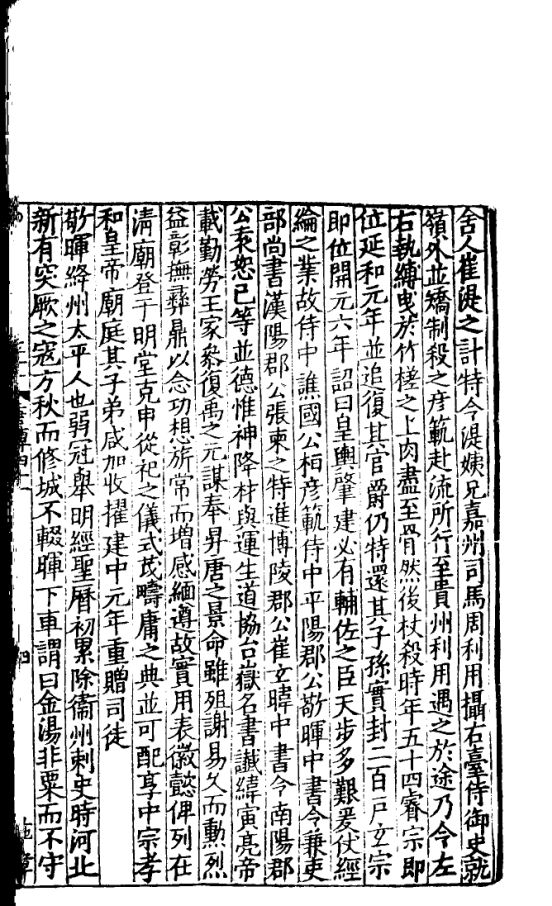 舍人崔湜之計特令湜姨兄嘉州司馬周利用攝右臺侍御史就
嶺外並矯制殺之彥範赴流所行至貴州利用遇之於途乃令左
右執縛曳於竹槎之上肉盡至骨然後杖殺時年五十四睿宗即
位延和元年並追復其官爵仍特還其子孫實封二百戶玄宗
即位開元六年詔曰皇輿肇建必有輔佐之臣天步多艱爰仗經
綸之業故侍中譙國公桓彥範侍中平陽郡公敬暉中書令兼吏
部尚書漢陽郡公張柬之特進博陵郡公崔玄暐中書令南陽郡
公袁恕己等並德惟神降材與運生道協台嶽名書讖緯寅亮帝
載勤勞王家叅復禹之元謀奉昇唐之景命雖殂謝易久而勳烈
益彰撫彝鼎以念功想旂常而增感緬遵故實用表徽懿俾列在
清廟登于明堂克申從祀之儀式茂疇庸之典並可配享中宗孝
和皇帝廟庭其子弟咸加收擢建中元年重贈司徒
敬暉絳州太平人也弱冠舉明經聖曆初累除衞州刺史時河北
新有突厥之寇方秋而修城不輟暉下車謂曰金湯非粟而不守